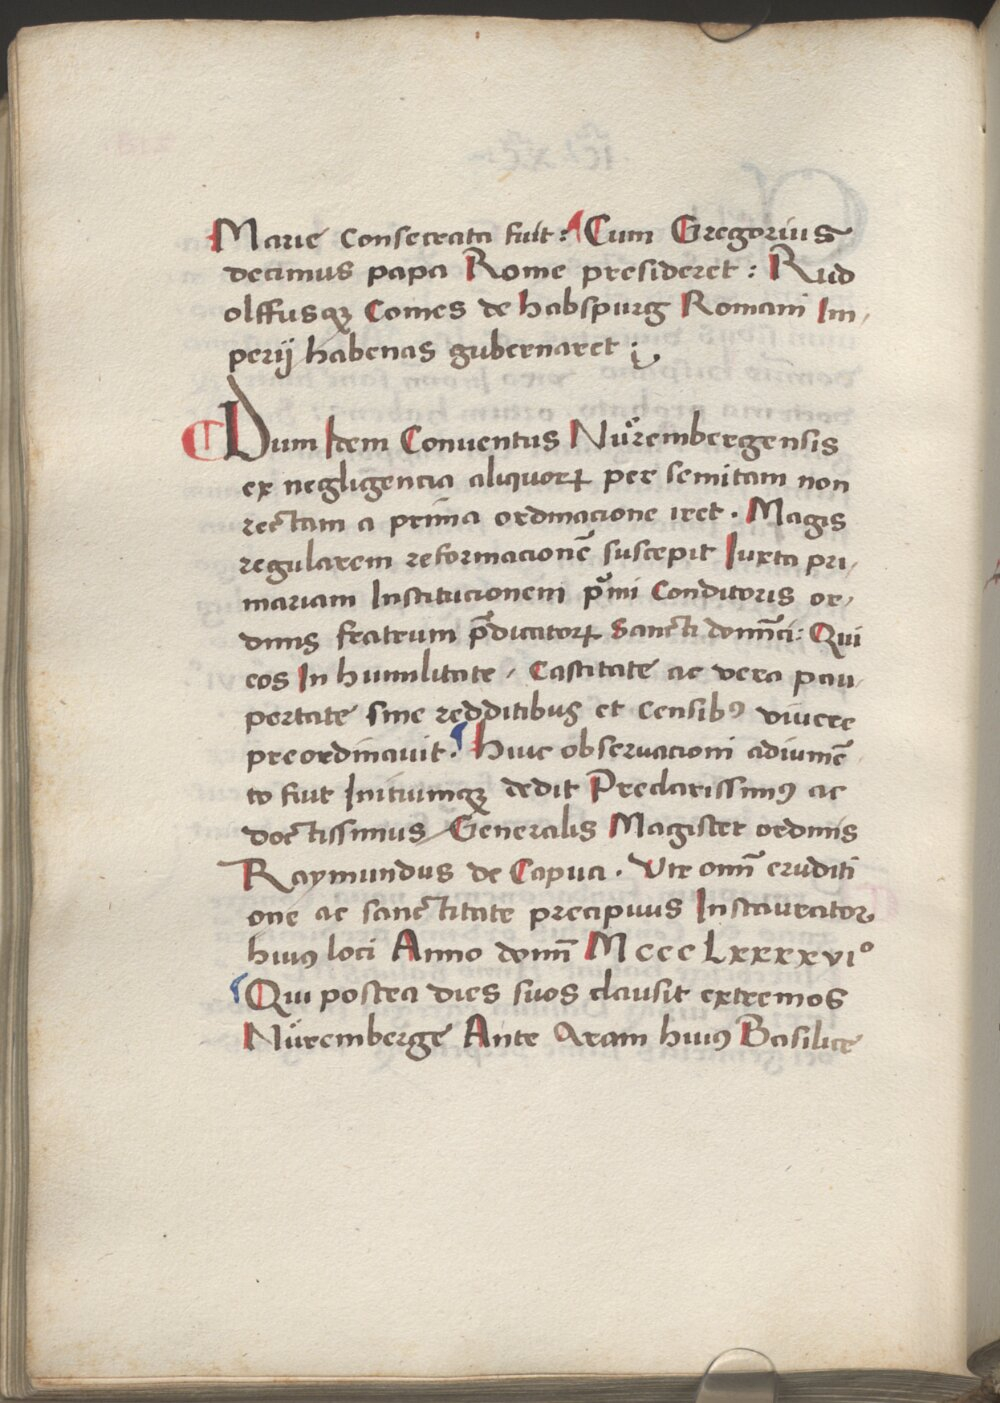 Marie Consecrata fuit: Cum Gregorius
decimus papa Rome presideret: Rud
olffusqꝫ Comes de habspurg Romani Im,
perij habenas gubernaret ;
Dum Idem Conuentus Nuͦrembergensis
ex negligencia aliquorꝝ per semitam non
rectam a prima ordinacione iret. Magis
regularem reformacionē suscepit Iuxta pri,
mariam Institucionem pͥmi Conditoris or,
dinis fratrum p̄dicatorꝝ Sancti domīci: Qui
eos In humilitate, Castitate ac vera pau,
pertate sine redditibus et censibꝰ viuere
preordinauit. Huic obseruacioni adiumē
to fuit Initiumqꝫ dedit Preclarissimꝰ ac
doctissimus Generalis Magister ordinis
Raymundus de Capua. Vir omī eruditi
one ac sanctitate precipuus Instaurator
huiꝰ loci Anno domī MCCCLxxxxvıº
Qui postea dies suos clausit extremos
Nuͦremberge Ante Aram huiꝰ Basilice